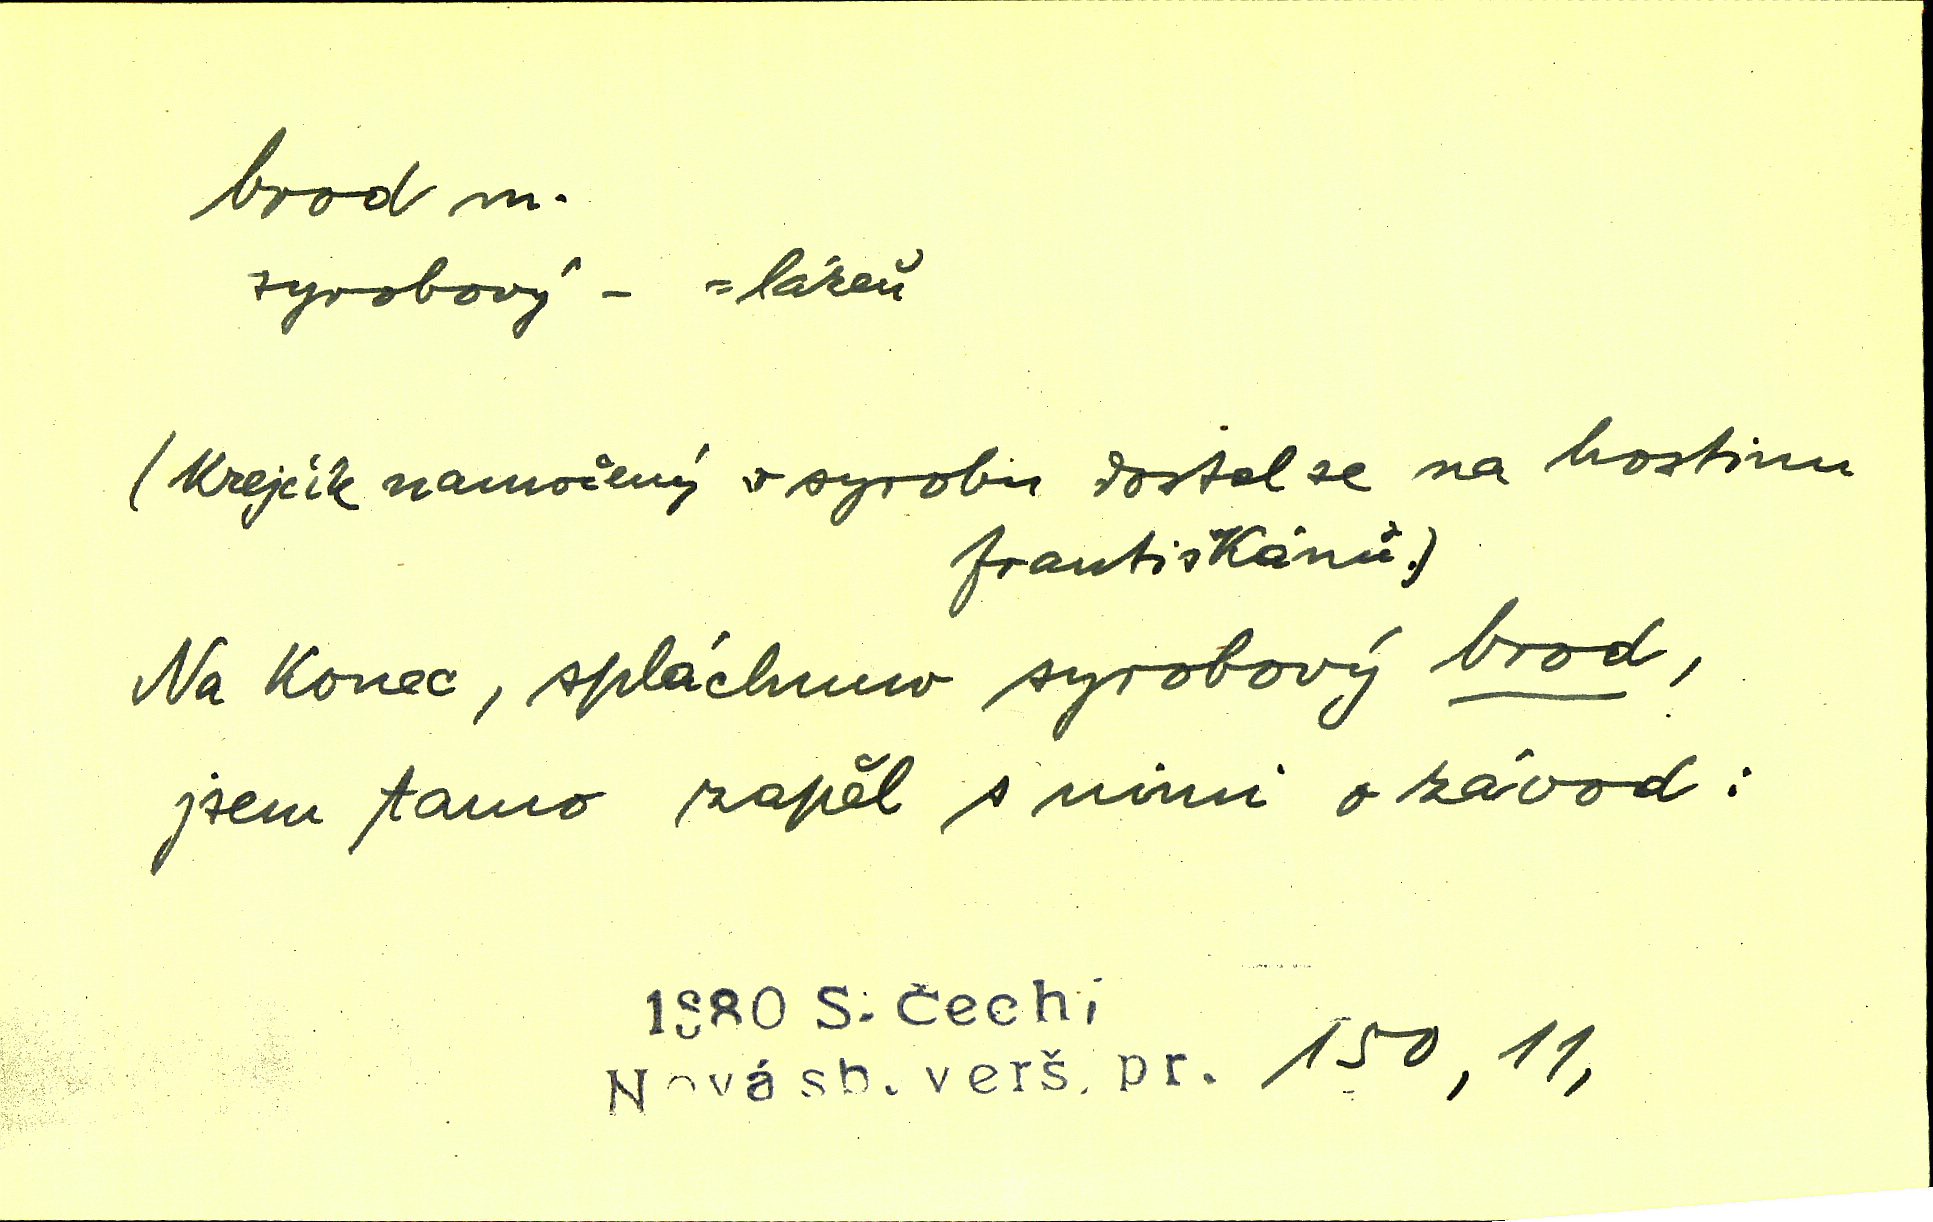 brod m.
syrobový – = lázeň
(Krejčík namočený v syrobu dostal se na hostinu
františkánů.)
Na konec, spláchnuv syrobový brod,
jsem tamo zapěl s nimi o závod:
1880 S. Čech:
Nová sb. verš. pr. 150, 11,